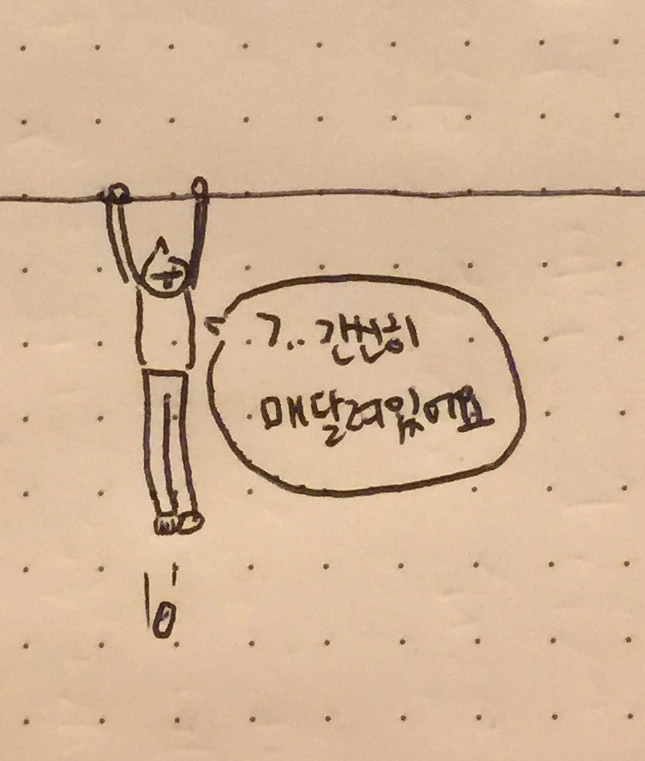 ㄱ.. 간신히
매달려있어요